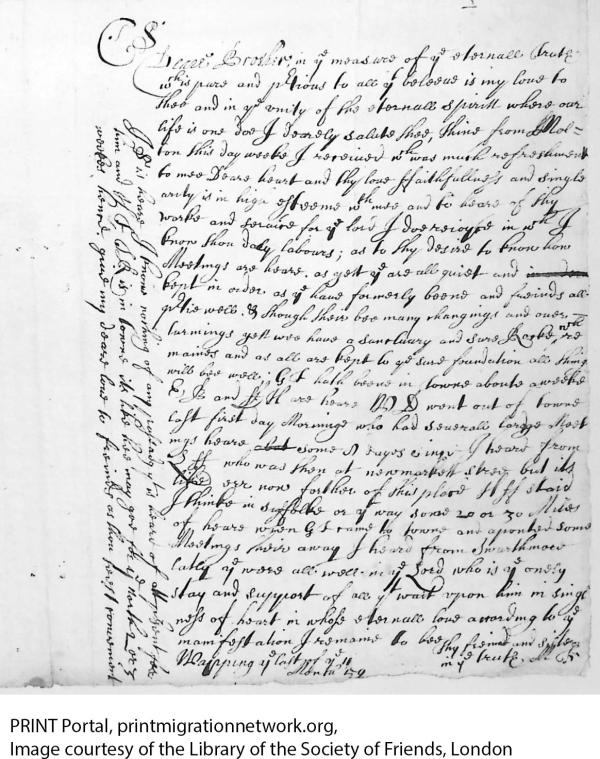 Deare Brother, in ye measure of ye eternall truth
wch is pure and to all yt beleeve is my love to
thee and in ye unity of the eternall spiritt where our
life is one doe I dearely salute thee, thine from Mol=
ton this day weeke I received wch was much refreshment
to mee Deare heart and thy love ffaithfullness and single
arity is in high esteeme wth mee and to heare of thy
worke and servise for ye lord I doe reioyse in wch I
know thou dayly labours; as to thy desire to know how
Meetings are heare, as yett ye are all quiet and
kept in order as ye have formerly beene and freinds all
well. & though ther bee many changings and over=
turnings yett wee have a sanctuary and sure Rocke, wch re
maines and as all are kept to ye sure foundation all thing
will bee well; G F hath beene in towne aboute a weeke
and are heare went out of towne
last first day Morninge who had severall large Meet
ings heare some I heard from
who was then at newmarkett but is
now forther of this place staid
I thinke in suffolke or yt way some 20 or 30 Miles
of heare when G F came to towne and aponted some
Meetings their away I heard from Swarthmore
lately ye were all well in ye Lord who is ye onely
stay and support of all yt wait upon him in singl
ness of heart in whose eternall love according to ye
manifestation I remane to bee thy freind and sister
in ye truth
Wapping ye last of ye 11
Month 59
heare I know nothing of any
him and is in towne it like hee may goe
worke, heare give my deare love to freinds as thou
PRINT Portal, printmigrationnetwork.org,
Image courtesy of the Library of the Society of Friends, London